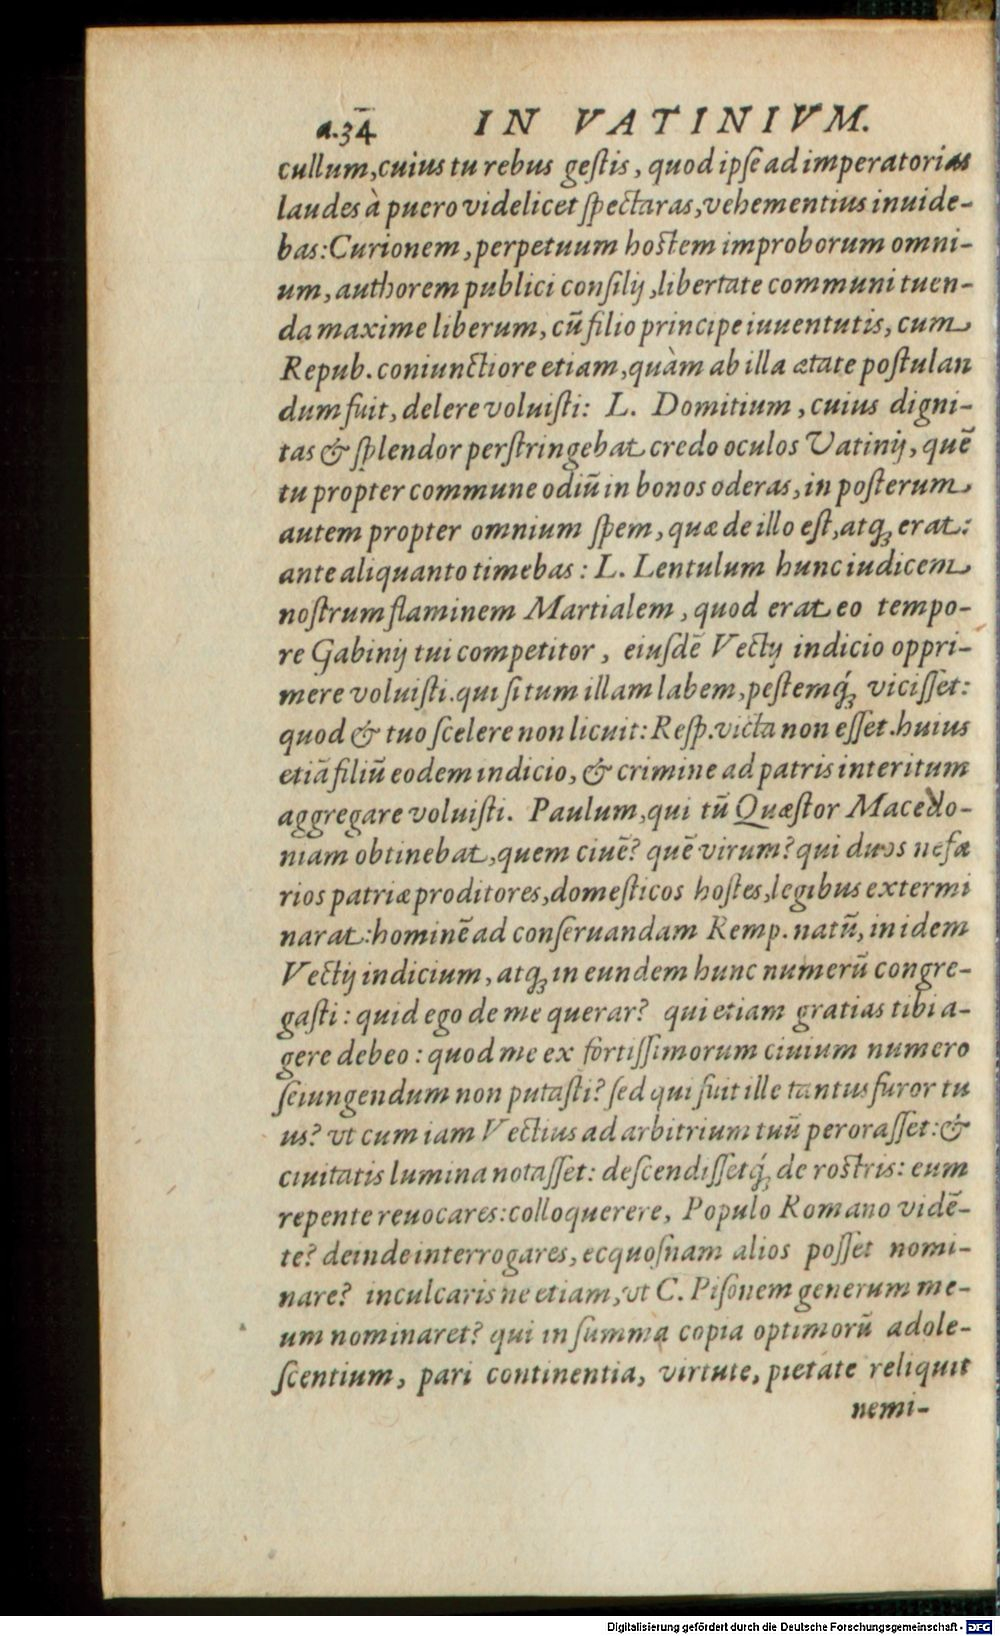 a.34 IN VATINIVM.
cullum, cuius tu rebus geſtis, quod ipſe ad imperatorias
laudes à puero videlicet ſpectaras, vehementius inuide-
bas: Curionem, perpetuum hoſtem improborum omni-
um, authorem publici conſilij, libertate communi tuen-
da maxime liberum, cũ filio principe iuuentutis, cum
Repub. coniunctiore etiam, quàm ab illa ætate poſtulan
dum fuit, delere voluiſti: L. Domitium, cuius digni-
tas & ſplendor perſtringebat credo oculos Vatinij, quẽ
tu propter commune odiũ in bonos oderas, in poſterum
autem propter omnium ſpem, quæ de illo eſt, atq; erat:
ante aliquanto timebas: L. Lentulum hunc iudicem
noſtrum flaminem Martialem, quod erat eo tempo-
re Gabinij tui competitor, eiuſdẽ Vectij indicio oppri-
mere voluiſti. qui ſi tum illam labem, peſtemq́; viciſſet:
quod & tuo ſcelere non licuit: Reſp. victa non eſſet. huius
etiã filiũ eodem indicio, & crimine ad patris interitum
aggregare voluiſti. Paulum, qui tũ Quæſtor Macedo-
niam obtinebat, quem ciuẽ? quẽ virum? qui duos nefa
rios patriæ proditores, domeſticos hoſtes, legibus extermi
narat: hominẽ ad conſeruandam Remp. natũ, in idem
Vectij indicium, atq; in eundem hunc numerũ congre-
gaſti: quid ego de me querar? qui etiam gratias tibi a-
gere debeo: quod me ex fortiſſimorum ciuium numero
ſeiungendum non putaſti? ſed qui fuit ille tantus furor tu
us? vt cum iam Vectius ad arbitrium tuũ peroraſſet: &
ciuitatis lumina notaſſet: deſcendiſſetq́; de roſtris: eum
repente reuocares: colloquerere, Populo Romano vidẽ-
te? deinde interrogares, ecquoſnam alios poſſet nomi-
nare? inculcaris ne etiam, vt C. Piſonem generum me-
um nominaret? qui in ſumma copia optimorũ adole-
ſcentium, pari continentia, virtute, pietate reliquit
nemi-
Digitalisierung gefördert durch die Deutsche Forschungsgemeinschaft - DFG